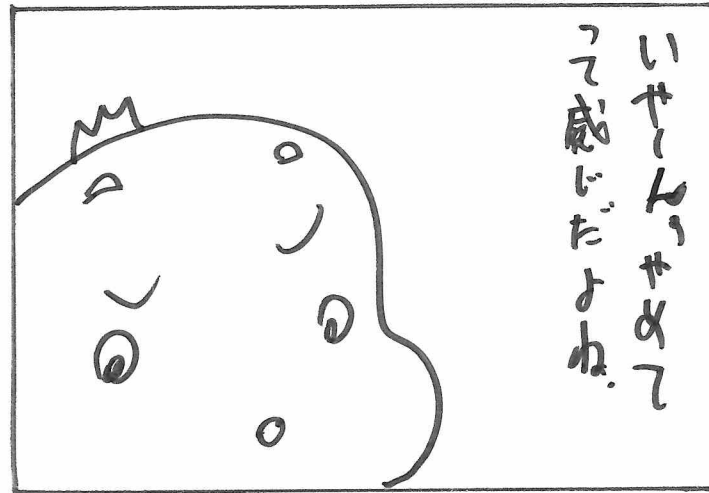 いやーん、やめて
って感じだよね.